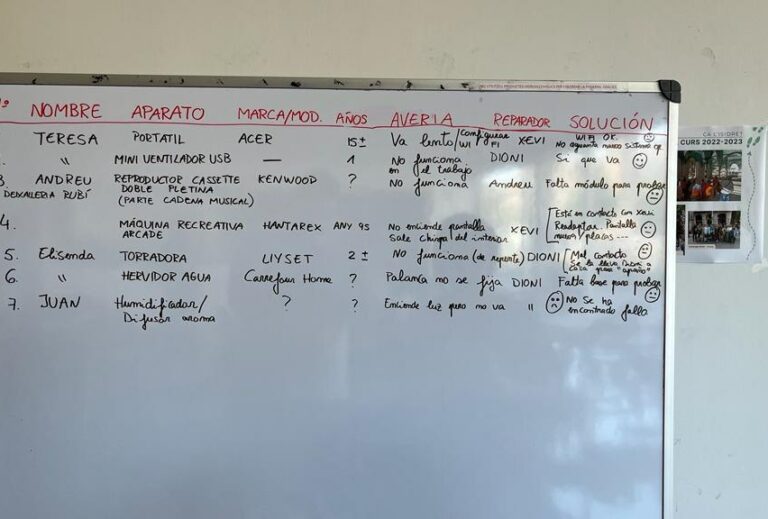 Nº NOMBRE APARATO MARCA/MOD. AÑOS AVERIA REPARADOR SOLUCIÓN
TERESA PORTATIL ACER 15± Va lento/configurar WI FI XEVI WIFI OK. No aguanta nuevo sistema op.
" MINI VENTILADOR USB — 1 No funciona en el trabajo DIONI Si que va
3 ANDREU REPRODUCTOR CASSETTE KENWOOD ? No funciona Andreu Falta módulo para probar
DEIXALLERIA RUBÍ DOBLE PLETINA
(PARTE CADENA MUSICAL)
4. MÁQUINA RECREATIVA ARCADE HANTAREX ANY 95 No enciende pantalla Sale chispa del interior XEVI Está en contacto con Xevi
Readaptar. Pantalla
nueva/placas ---
5. Elisenda TORRADORA LIYSET 2 ± No funciona (de repente) DIONI Mal contacto
Se la lleva a
casa "apaño"
6. " HERVIDOR AGUA Carrefour Home ? Palanca no se fija DIONI Falta base para probar
7. JUAN Humidificador/ ? ? Enciende luz pero no va " No se ha
Difusor aroma encontrado fallo
CA L'ISIDRET
CURS 2022-2023